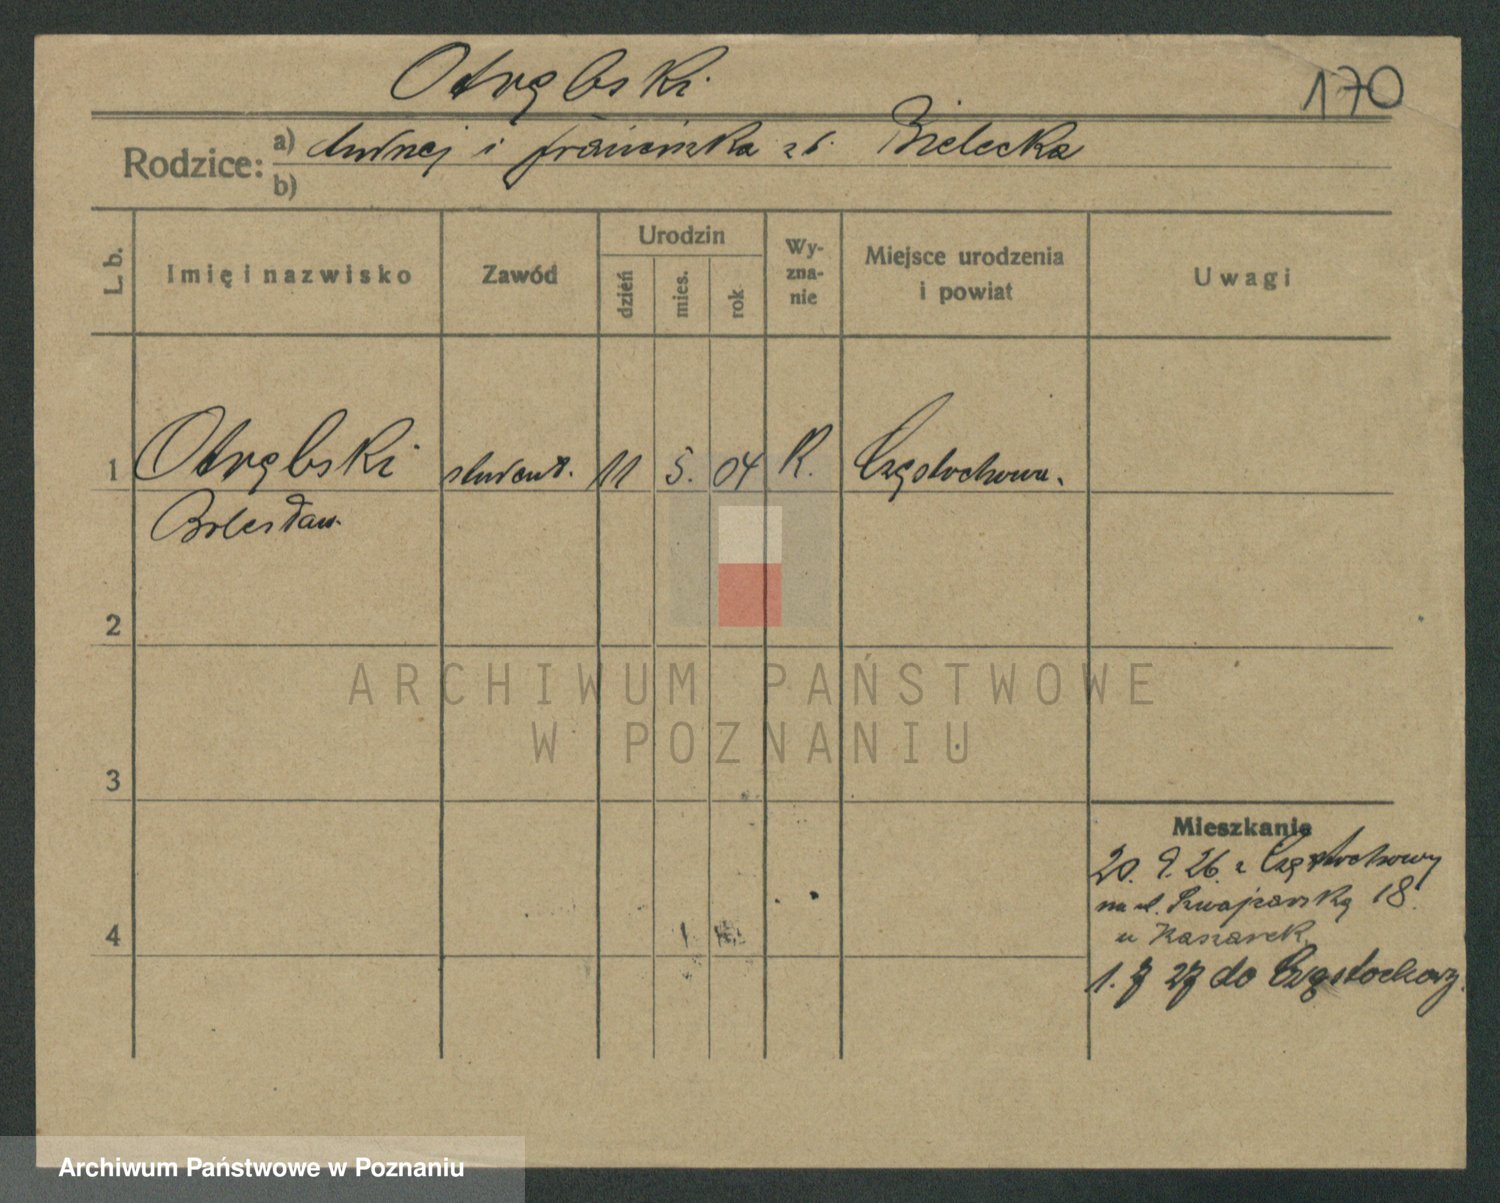 Otrębski
170
Rodzice: a) Andrzej i Franciszka zd. Bielecka
b)
L. b.
Imię i nazwisko
Zawód
Urodzin
dzień
mies.
rok
Wy-
zna-
nie
Miejsce urodzenia
i powiat
Uwagi
1 Otrębski student. 11 5. 04 R. Częstochowa.
Bolesław
2
ARCHIWUM PAŃSTWOWE
W POZNANIU
3
Mieszkanie
20. 9. 26. z Częstochowy
na ul. Szwajcarską 18.
4
u Kaszarek
1. 7 27 do Częstochowy.
Archiwum Państwowe w Poznaniu